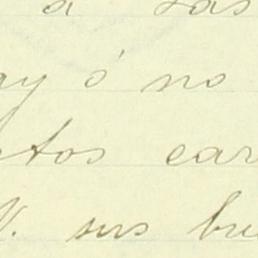 a las
ay ó no
tos car
V. sus bu